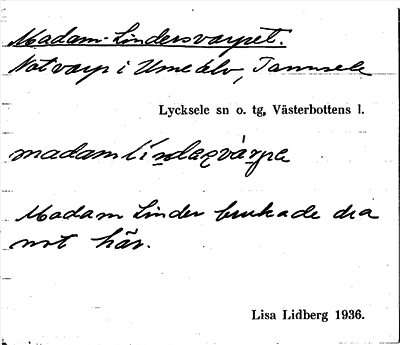 Madam-Lindersvarpet.
Notvarp i Ume älv, Tannsele
Lycksele sn o. tg, Västerbottens l.
madam líndaṣvàrpa
Madam Linder brukade dra
not här.
Lisa Lidberg 1936.